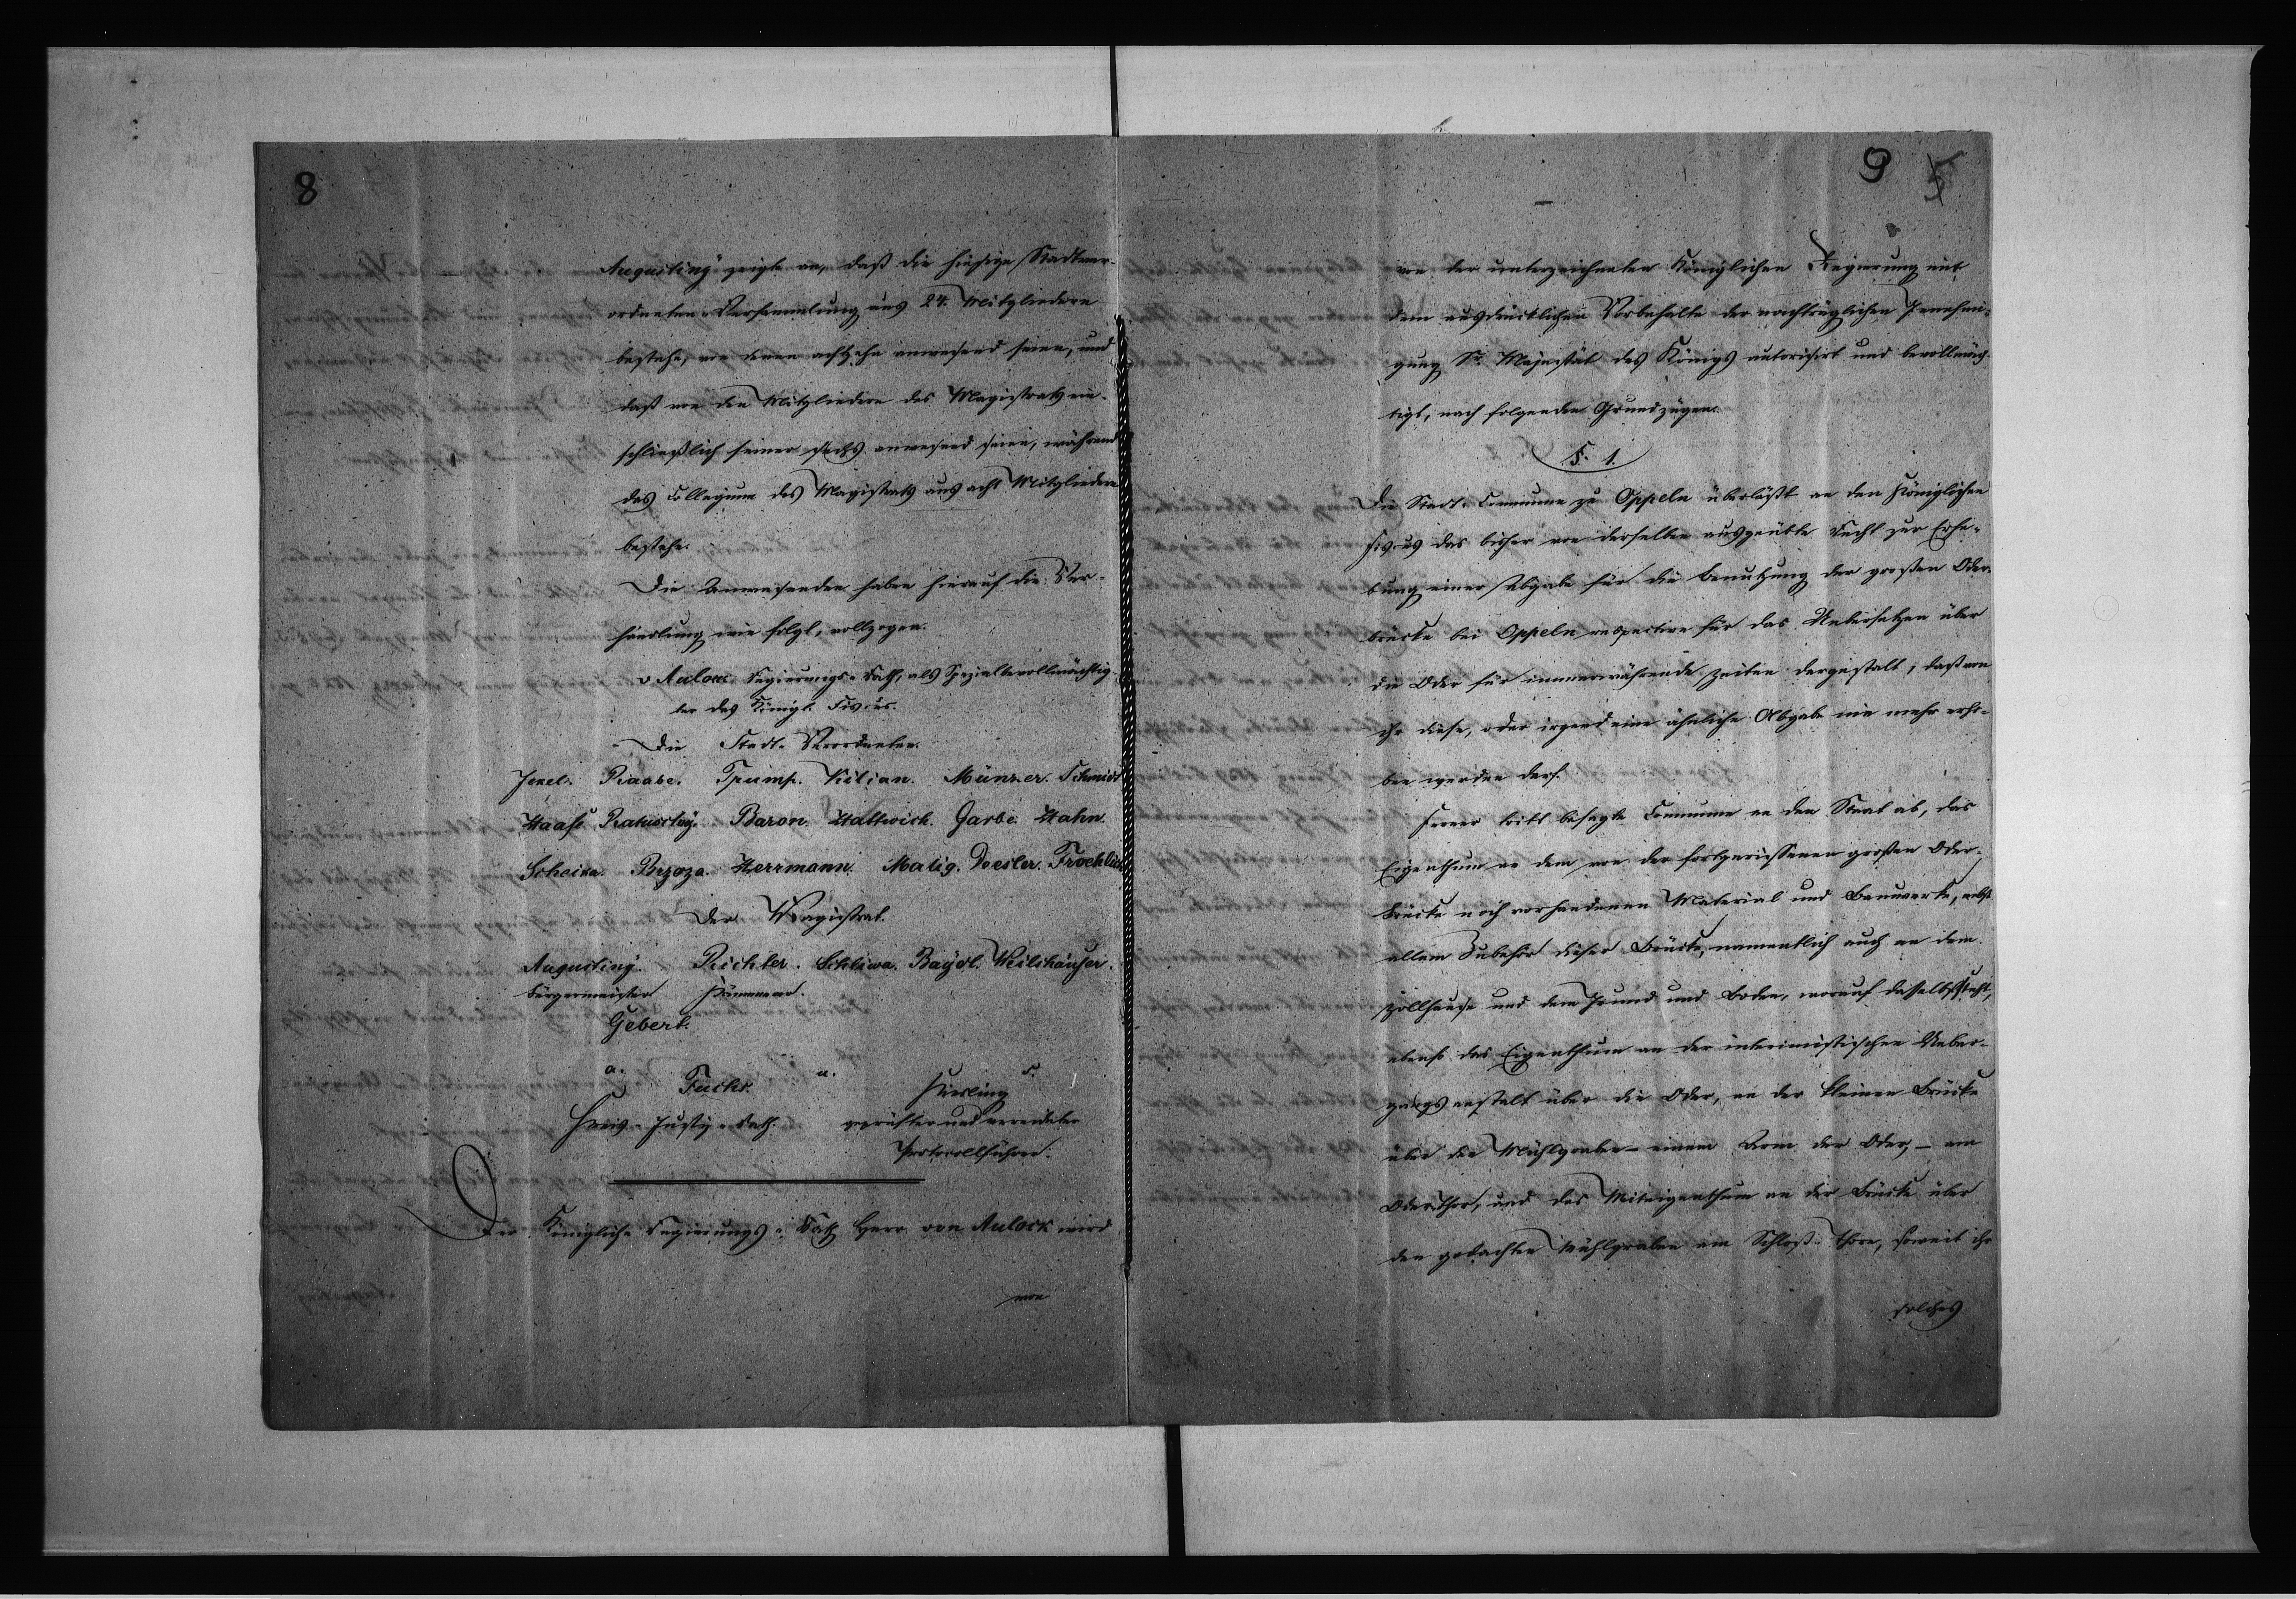 8
Augustiny zeigte an, daß die hiesige Stadtver-
ordneten-Versammlung aus 24. Mitgliedern
bestehe, von denen achtzehn anwesend seien, und
daß von den Mitgliedern des Magistrats ein-
schließlich seiner sechs anwesend seien, während
das Collegium des Magistrats aus acht Mitgliedern
bestehe.
Die Anwesenden haben hierauf die Ver-
handlung wie folgt, vollzogen.
v Aulock Regierungs-Rath, als Spezialbevollmächtig-
ter des Königl. Fiscus.
Die Stadt-Verordneten.
Jekel. Raabe. Trump. Kilian. Münzer. Schmidt
Haase Ratuschny. Baron. Haltwich. Garbe. Hahn.
Brzoza. Herrmann. Matig. Doesler. Froehlich
Der Magistrat.
Augustiny. Richter. Schliwa. Baydl. Weilshäuser.
Bürgermeister Kämmerer.
Gebert.
a. u. s.
Fuchs.
Kreis-Justiz-Rath. geprüfter und vereideter
Protocollführer.
Der Königliche Regierungs-Rath Herr von Aulock wird
von
9 5
von der unterzeichneten Königlichen Regierung mit
dem ausdrücklichen Vorbehalte der nachträglichen Genehmi-
gung Sr. Majestät des Königs autorisirt und bevollmäch-
tigt, nach folgenden Grundzügen.
§. 1.
Die Stadt-Commune zu Oppeln überläßt an den Königlichen
Fiscus das bisher von derselben ausgeübte Recht zur Erhe-
bung einer Abgabe für die Benutzung der großen Oder-
brücke bei Oppeln respective für das Uebersetzen über
die Oder für immerwährende Zeiten dergestalt, daß von
ihr diese, oder irgend eine ähnliche Abgabe nie mehr erho-
ben werden darf.
Ferner tritt besagte Commune an den Staat ab, das
Eigenthum an dem von der fortgerissenen großen Oder-
brücke noch vorhandenen Material und Bauwerke, nebst
allem Zubehör dieser Brücke, namentlich auch an dem
Zollhause und dem Grund und Boden, worauf dasselbe steht,
ebenso das Eigenthum an der interimistischen Ueber-
gangsanstalt über die Oder, an der kleinen Brücke
über den Mühlgraben – einem Arm der Oder, – am
Oderthor, und das Miteigenthum an der Brücke über
den gedachten Mühlgraben am Schloß-Thore, soweit ihr
solches